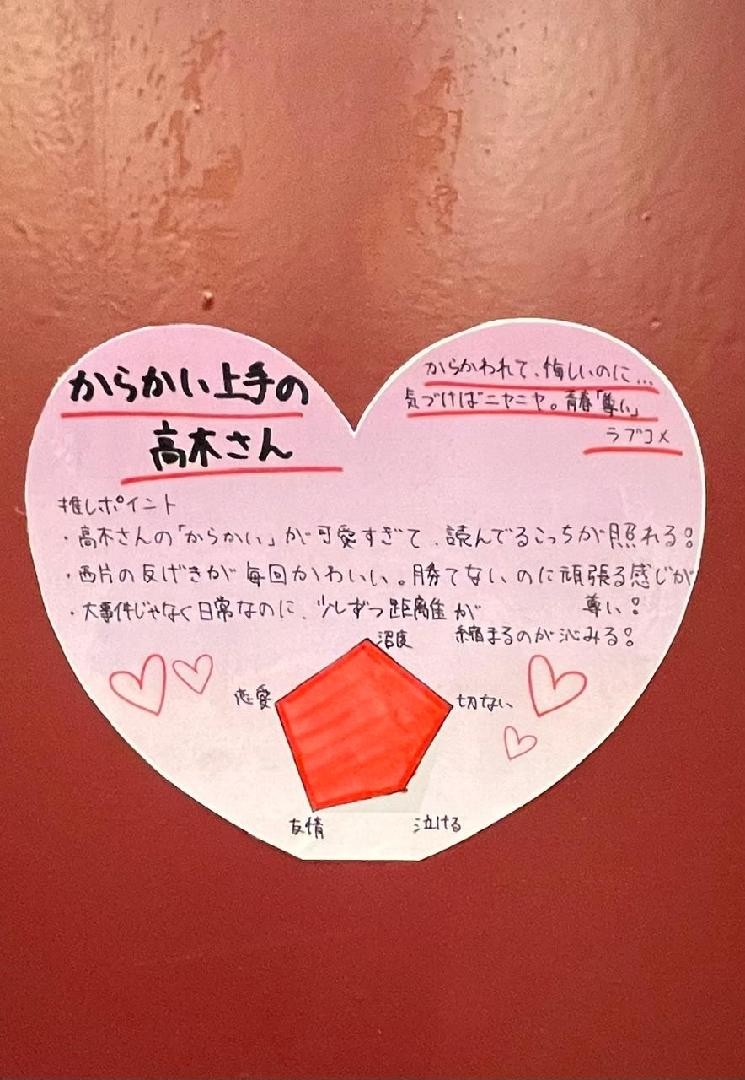 からかい上手の
高木さん
からかわれて、悔しいのに…
気づけばニヤニヤ。青春「尊い」
ラブコメ
推しポイント
・高木さんの「からかい」が可愛すぎて、読んでるこっちが照れる!
・西片の反げきが毎回かわいい。勝てないのに頑張る感じが
尊い!
・大事件じゃなく日常なのに、少しずつ距離が
縮まるのが沁みる!
沼度
恋愛
切ない
友情
泣ける